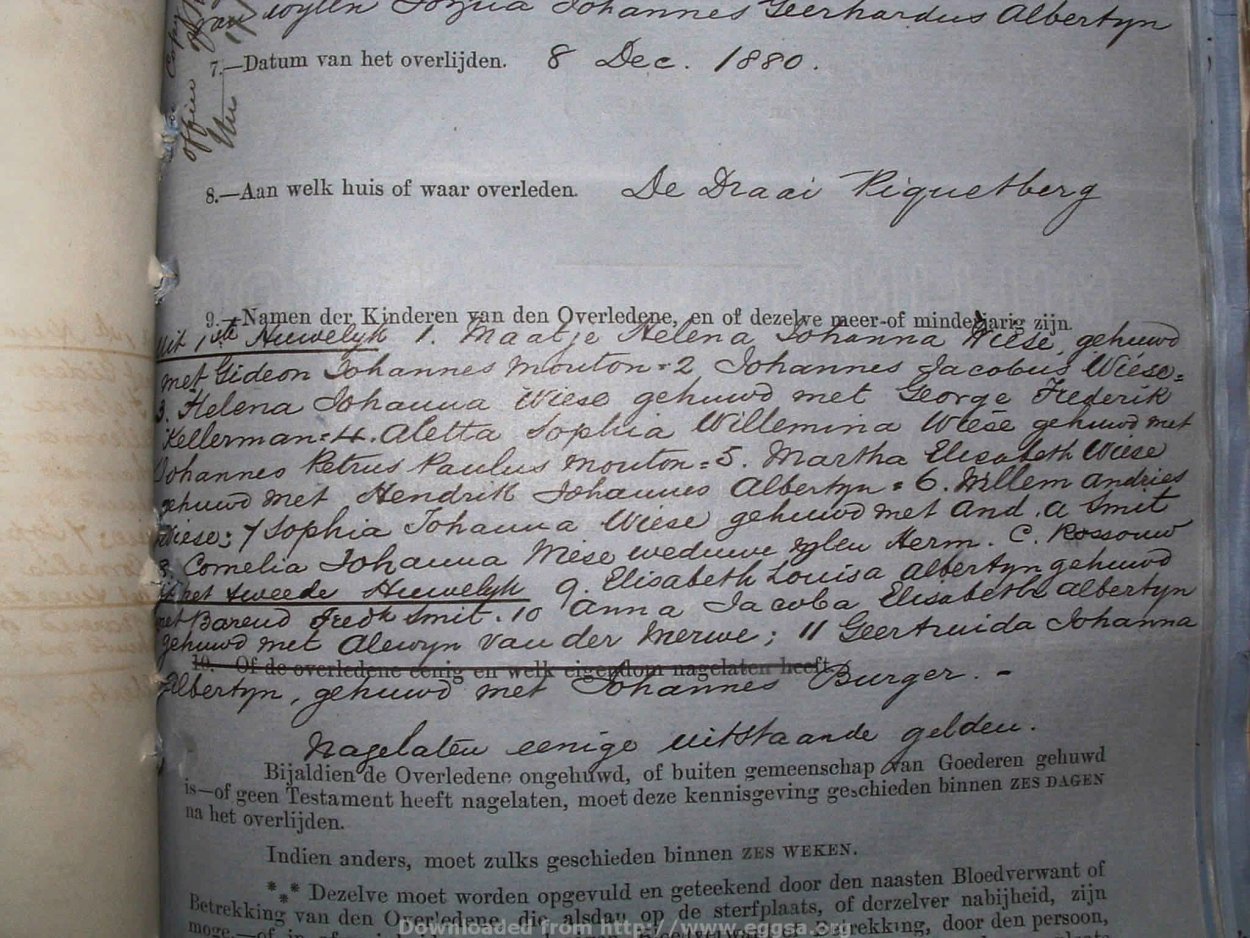 van wylen Josua Johannes Geerhardus Albertyn
7.—Datum van het overlijden. 8 Dec. 1880.
8.—Aan welk huis of waar overleden. De Draai Piquetberg
9.—Namen der Kinderen van den Overledene, en of dezelve meer-of minderjarig zijn.
uit 1ste Huwelyk 1. Maatje Helena Johanna Wiese, gehuwd
met Gideon Johannes Mouton = 2 Johannes Jacobus Wiese =
3. Helena Johanna Wiese gehuwd met George Frederik
Kellerman = 4. Aletta Sophia Willemina Wiese gehuwd met
Johannes Petrus Paulus Mouton = 5. Martha Elisabeth Wiese
gehuwd met Hendrik Johannes Albertyn = 6. Willem Andries
Wiese; 7 Sophia Johanna Wiese gehuwd met And. A Smit
8. Cornelia Johanna Wiese weduwe wylen Herm. C. Rossouw
uit het tweede Huwelyk 9. Elisabeth Louisa Albertyn gehuwd
met Barend Fredk Smit. 10 Anna Jacoba Elisabeth Albertyn
gehuwd met Alewyn van der Merwe; 11 Geertruida Johanna
10.—Of de overledene eenig en welk eigendom nagelaten heeft.
Albertyn, gehuwd met Johannes Burger. -
Nagelaten eenige uitstaande gelden.
Bijaldien de Overledene ongehuwd, of buiten gemeenschap van Goederen gehuwd
is—of geen Testament heeft nagelaten, moet deze kennisgeving geschieden binnen ZES DAGEN
na het overlijden.
Indien anders, moet zulks geschieden binnen ZES WEKEN.
*** Dezelve moet worden opgevuld en geteekend door den naasten Bloedverwant of
Betrekking van den Overledene, die alsdan op de sterfplaats, of derzelver nabijheid, zijn
moge,—of in Betrekking, door den persoon,
Downloaded from http://www.eggsa.org